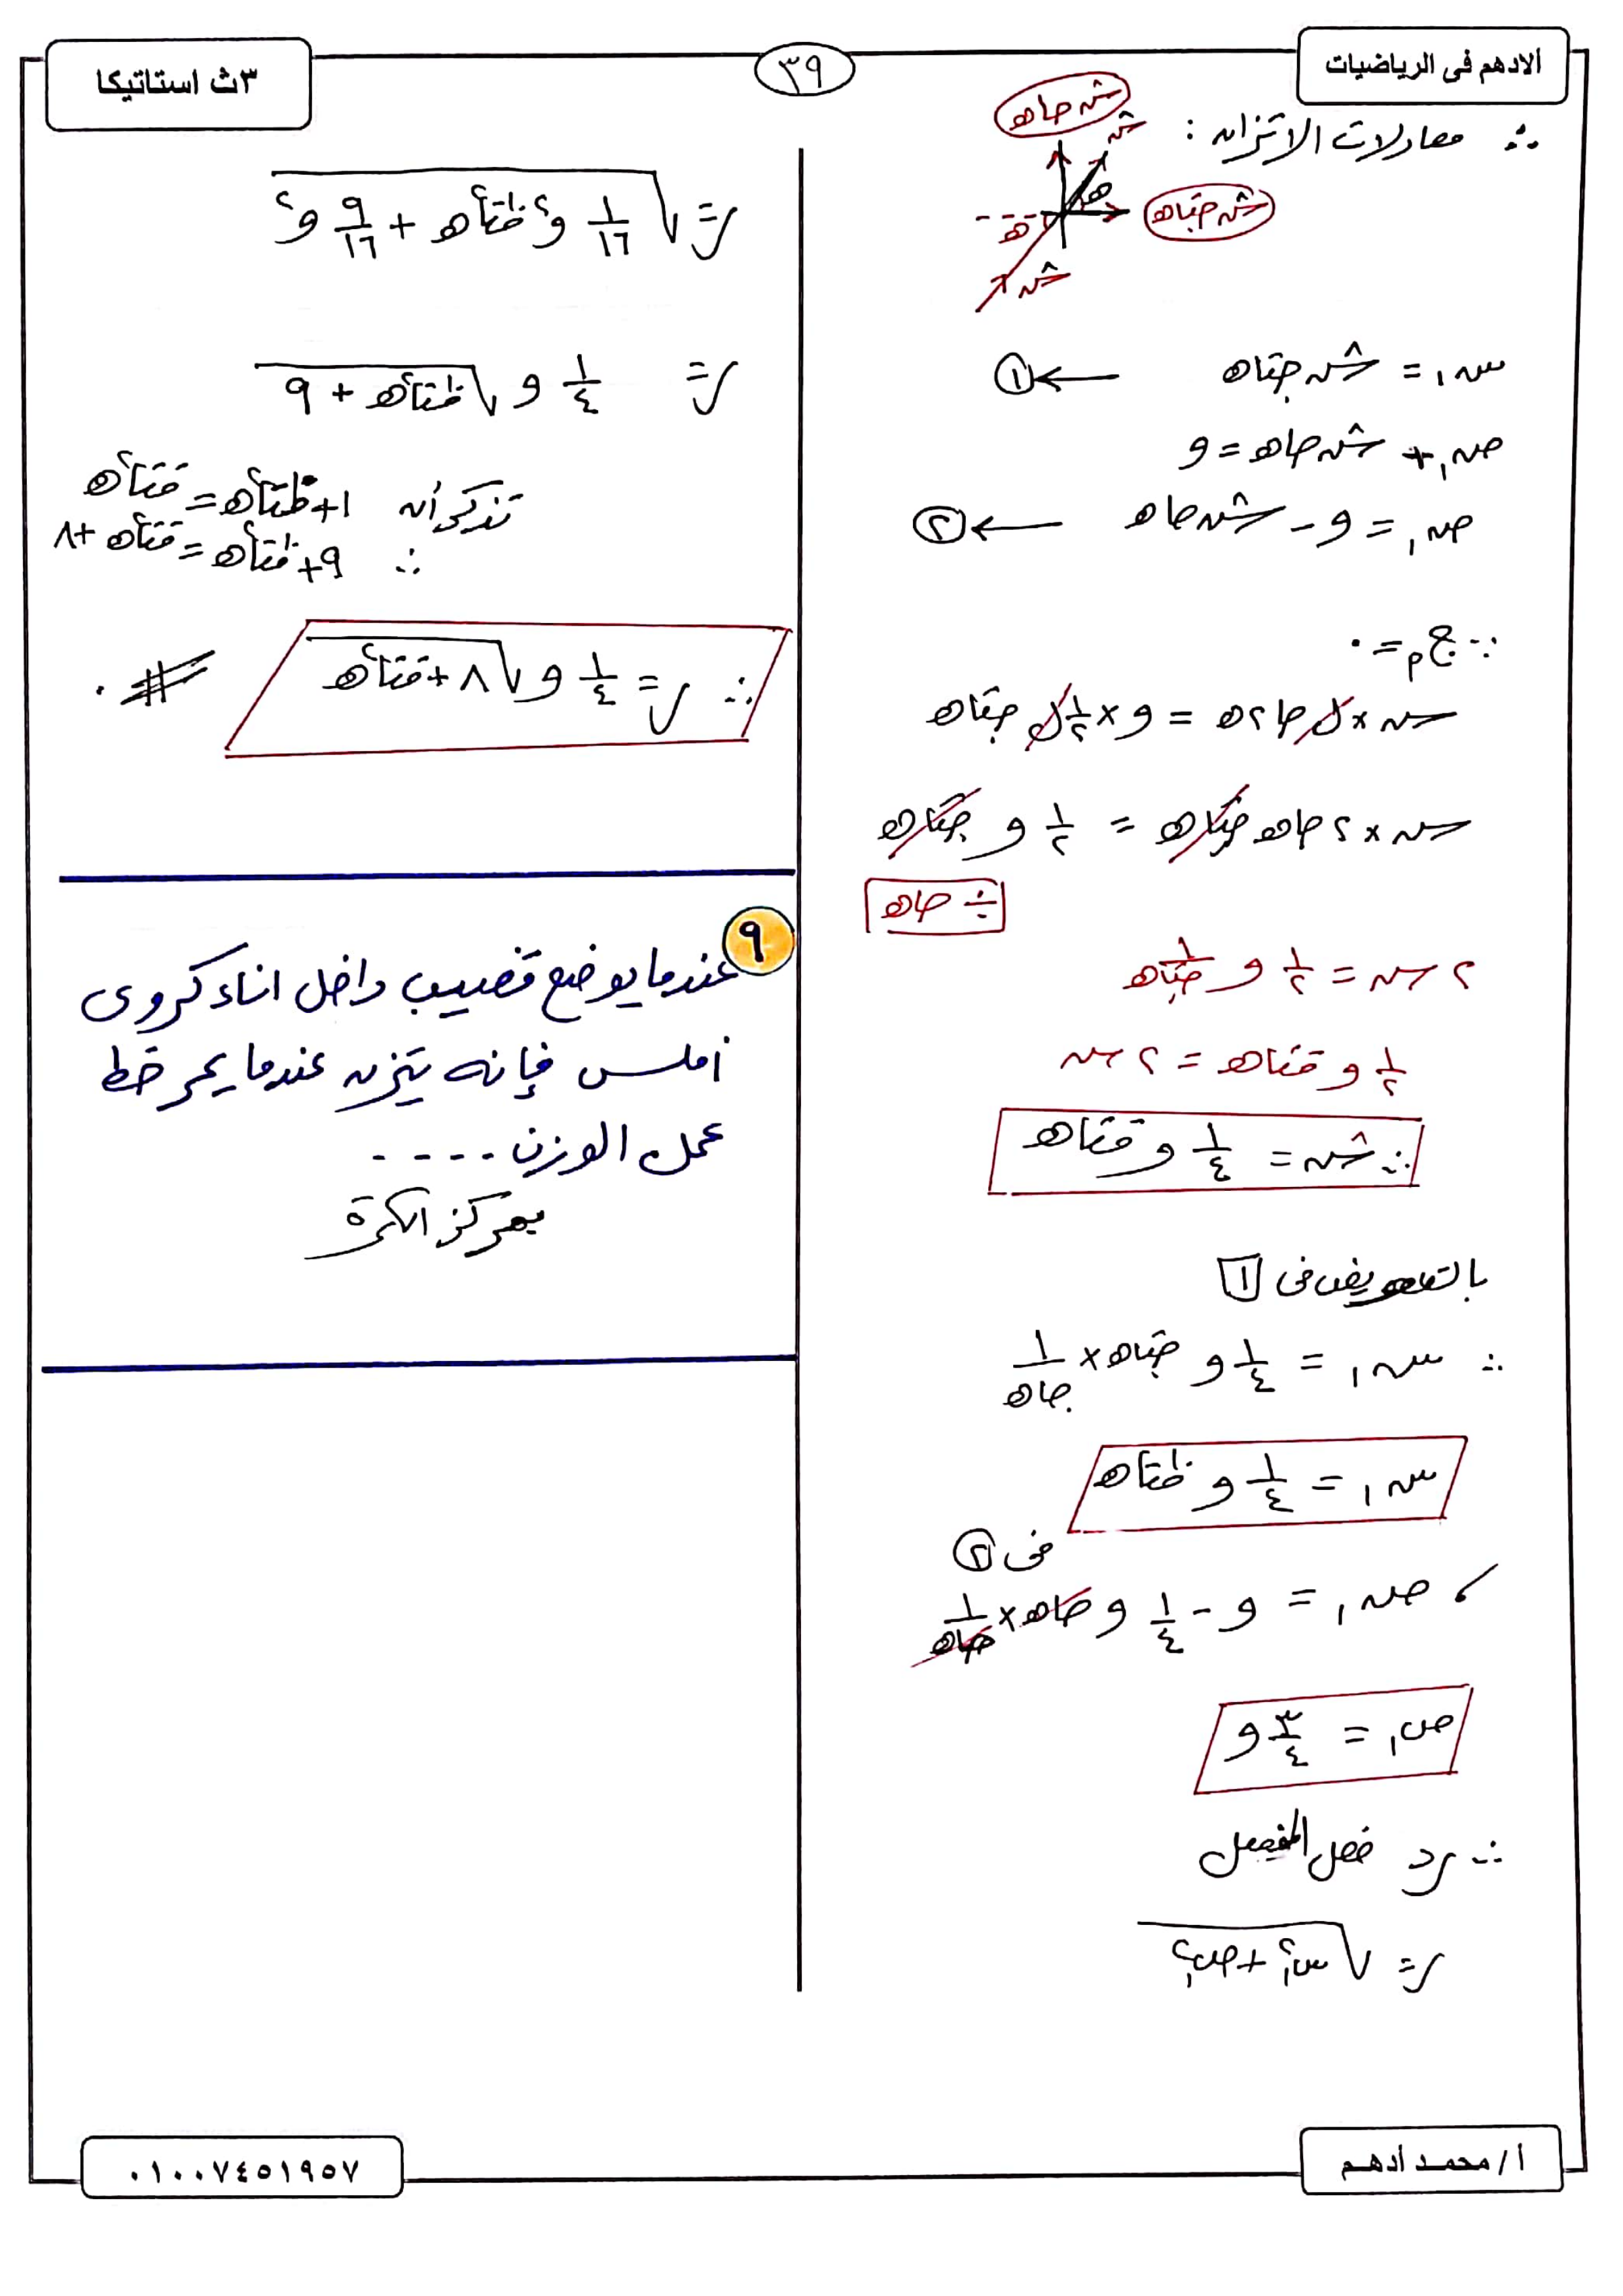 الادهم فى الرياضيات
٣٩
٣ث استاتيكا
∴ معادلات الاتزان :
شـ جاهـ
شـ
هـ
شـ جتاهـ
هـ
شـ
س١ = شـ جتاهـ ← ①
ص١ + شـ جاهـ = و
ص١ = و - شـ جاهـ ← ②
∵ ج م = ٠
شـ × ل جا٢هـ = و × ١/٢ ل جتاهـ
شـ × ٢ جاهـ جتاهـ = ١/٢ و جتاهـ
÷ جاهـ
٢ شـ = ١/٢ و ١/جتاهـ
١/٢ و قتاهـ = ٢ شـ
∴ شـ = ١/٤ و قتاهـ
بالتعويض فى ١
∴ س١ = ١/٤ و جتاهـ × ١/جاهـ
س١ = ١/٤ و ظتاهـ
فى ②
، ص١ = و - ١/٤ و جاهـ × ١/جاهـ
ص١ = ٣/٤ و
∴ رد فعل المفصل
ر = √(س١٢ + ص١٢)
ر = √(١/١٦ و٢ ظتا٢هـ + ٩/١٦ و٢)
ر = ١/٤ و √(ظتا٢هـ + ٩)
تذكر أن ١ + ظتا٢هـ = قتا٢هـ
∴ ٩ + ظتا٢هـ = قتا٢هـ + ٨
∴ ر = ١/٤ و √(٨ + قتا٢هـ) #.
٩ عندما يوضع قضيب داخل اناء كروى
أملس فإنه يتزن عندما يمر خط
عمل الوزن ....
بمركز الكرة
أ / محمد أدهم
٠١٠٠٧٤٥١٩٥٧